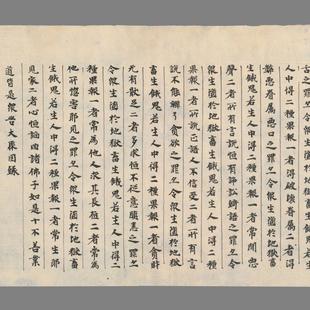 舌之罪亦令眾生墮於地獄畜生餓鬼若生
人中得二種果報一者得破壞眷属二者得
弊惡眷属惡口之罪亦令眾生墮於地獄畜
生餓鬼若生人中得二種果報一者常聞惡
聲二者所有言說恒有諍訟綺語之罪亦令
眾生墮於地獄畜生餓鬼若生人中得二種
果報一者說正語人不信受二者所有言
說不能辯了貪欲之罪亦令眾生墮於地獄
畜生餓鬼若生人中得二種果報一者貪財
无有猒足二者多求恒不從意瞋恚之罪亦
令眾生墮於地獄畜生餓鬼若生人中得二
種果報一者常為他人求其長短二者常為
他所惱害耶見之罪亦令眾生墮於地獄畜
生餓鬼若生人中得二種果報一者常生耶
見家二者心恒諂曲諸佛子如是十不善業
道皆是眾苦大聚因緣